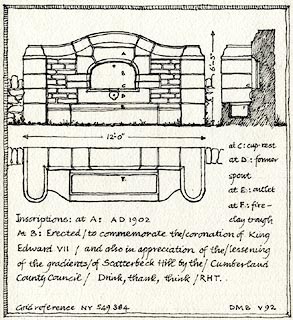 A
B
C
D
E
6'-3"
12'-0"
F
at C: cup-rest
at D: former
spout
at E: outlet
at F: fire-
clay trough
Inscriptions: at A: AD 1902
At B: Erected/ to commemorate the/ coronation of King
Edward VII / and also in appreciation of the/ lessening
of the gradients/ of Scatterbeck Hill by the/ Cumberland
County Council / Drink, thank, think / RHT.
Grid reference NY 549 384
DMB V92